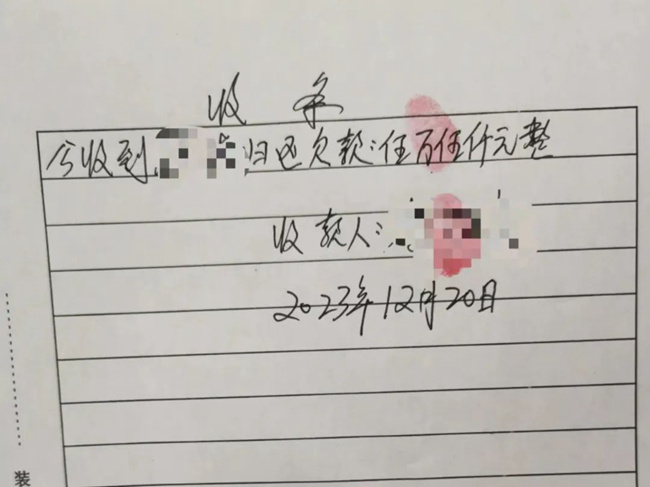 收条
今收到 归还欠款:伍万伍仟元整
收款人:
2023年12月20日
装